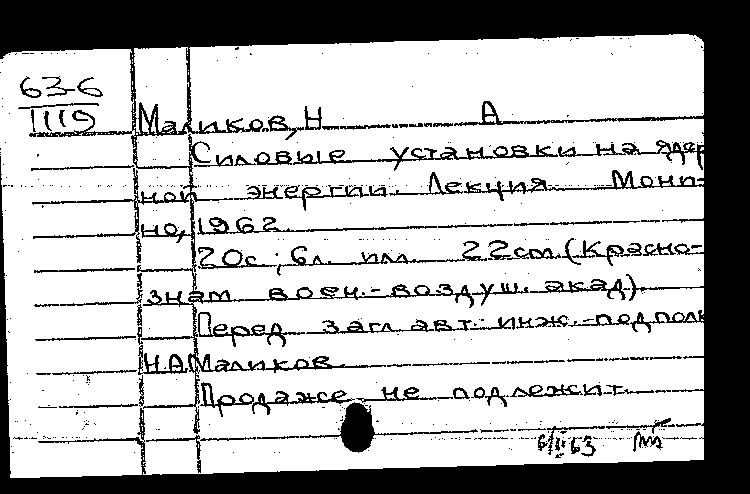 63-6
1119
Маликов, Н А
Силовые установки на ядер
ной энергии. Лекция. Мони-
но, 1962.
20с ; 6л. илл. 22см. (Красно-
знам воен.-воздуш. акад).
Перед загл авт.: инж.-подполк
Н.А.Маликов.
Продаже не подлежит.
6/II 63